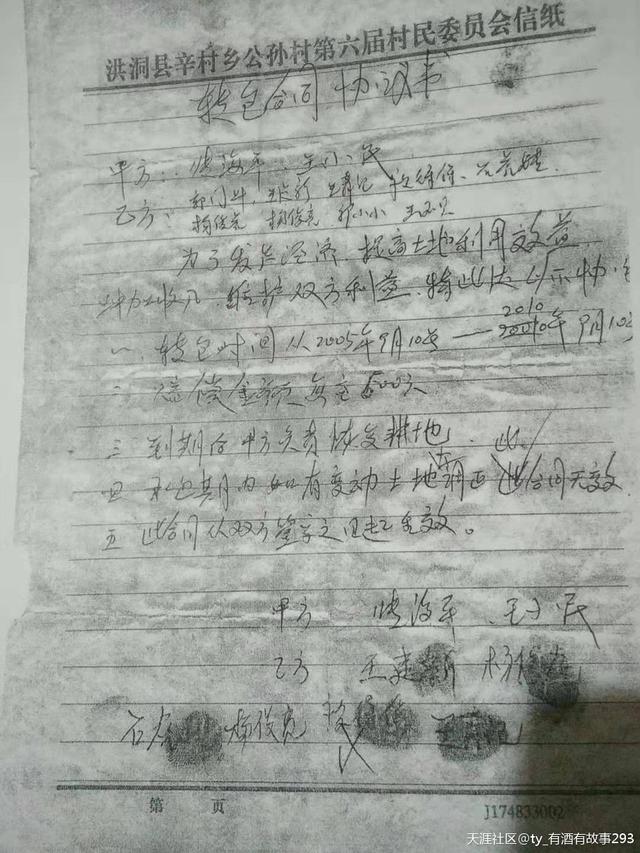 洪洞县辛村乡公孙村第六届村民委员会信纸
转包合同协议书
甲方： 海平、王小民
乙方：
杨俊亮 杨俊亮 小小
为了发展经济，提高土地利用效益
增加收入，维护双方利益，特此达以下协
一、转包时间从2005年9月10号——2010年9月10号
二、赔偿金额每亩600元
三 到期后甲方负责恢复耕地。此
四 承包期内如有变动土地调正 此合同无效
五 此合同从双方签字之日起生效。
甲方 海平、王小民
乙方 王建新 杨俊亮
石 杨俊亮 王
第 页
J174833002
天涯社区@ty_有酒有故事293